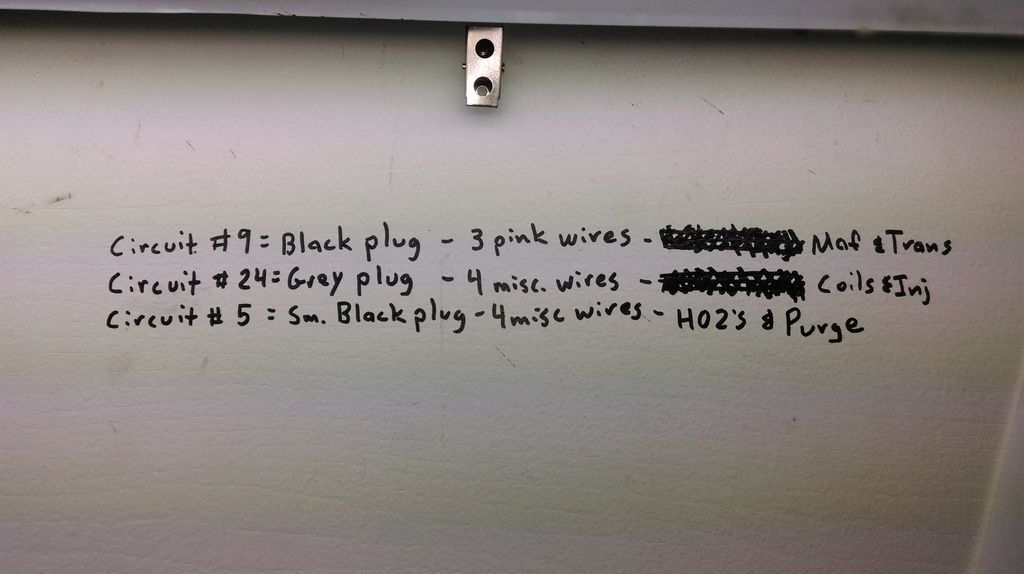 Circuit #9 = Black plug - 3 pink wires - Maf & Trans
Circuit # 24 = Grey plug - 4 misc. wires - Coils & Inj
Circuit # 5 = Sm. Black plug - 4 misc wires - HO2's & Purge